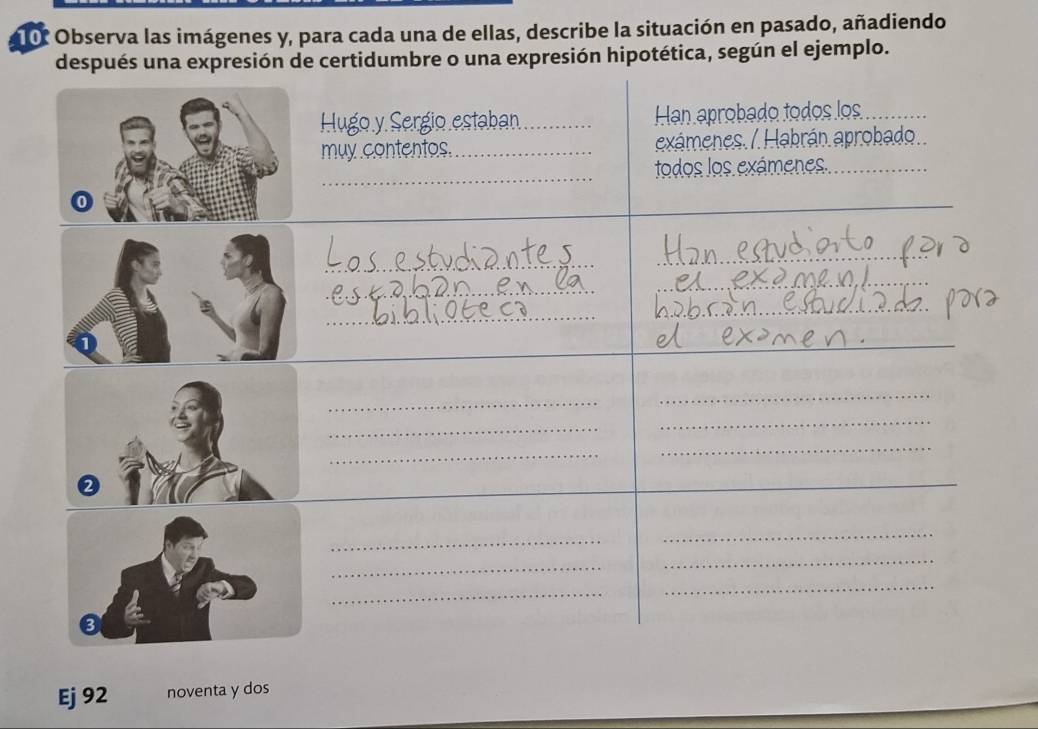 10 Observa las imágenes y, para cada una de ellas, describe la situación en pasado, añadiendo
después una expresión de certidumbre o una expresión hipotética, según el ejemplo.
0
Hugo y Sergio estaban
muy contentos.
Han aprobado todos los
exámenes. / Habrán aprobado
todos los exámenes.
1
Los estudiantes
estaban en la
biblioteca
Han estudiato para
el examen/
habràn estudiado para
el examen.
2
3
Ej 92 noventa y dos